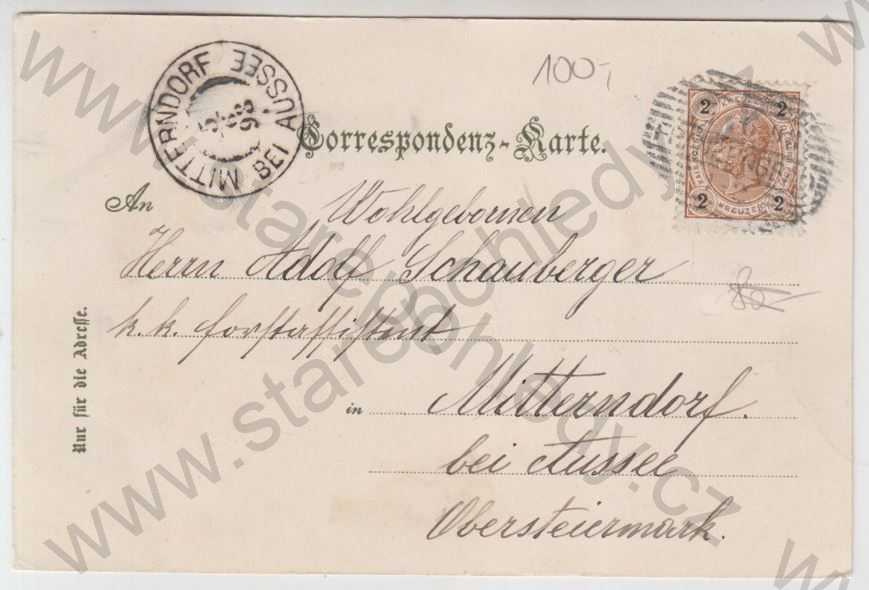 100,-
MITTERNDORF BEI AUSSEE
98
Correspondenz-Karte.
2 2
2 KREUZER 2
An Wohlgebornen
Herrn Adolf Schauberger
80-
k. k. Forstassistent
Nur für die Adresse.
in Mitterndorf.
bei Aussee
Obersteiermark.
www.starepohledy.cz